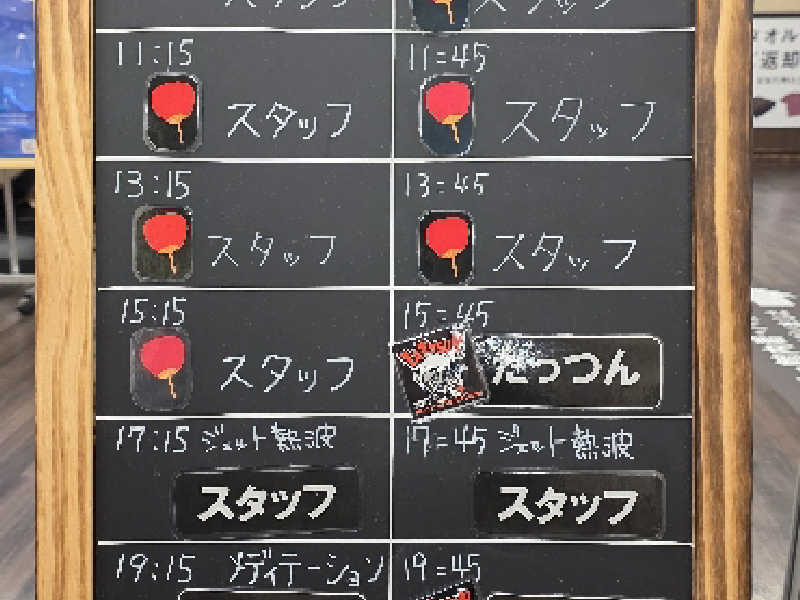 スタッフ
スタッフ
11:15
スタッフ
11=45
スタッフ
13:15
スタッフ
13=45
スタッフ
15:15
スタッフ
15=45
たっつん
17:15 ジェット熱波
スタッフ
17=45 ジェット熱波
スタッフ
19:15 メディテーション
19=45
返却